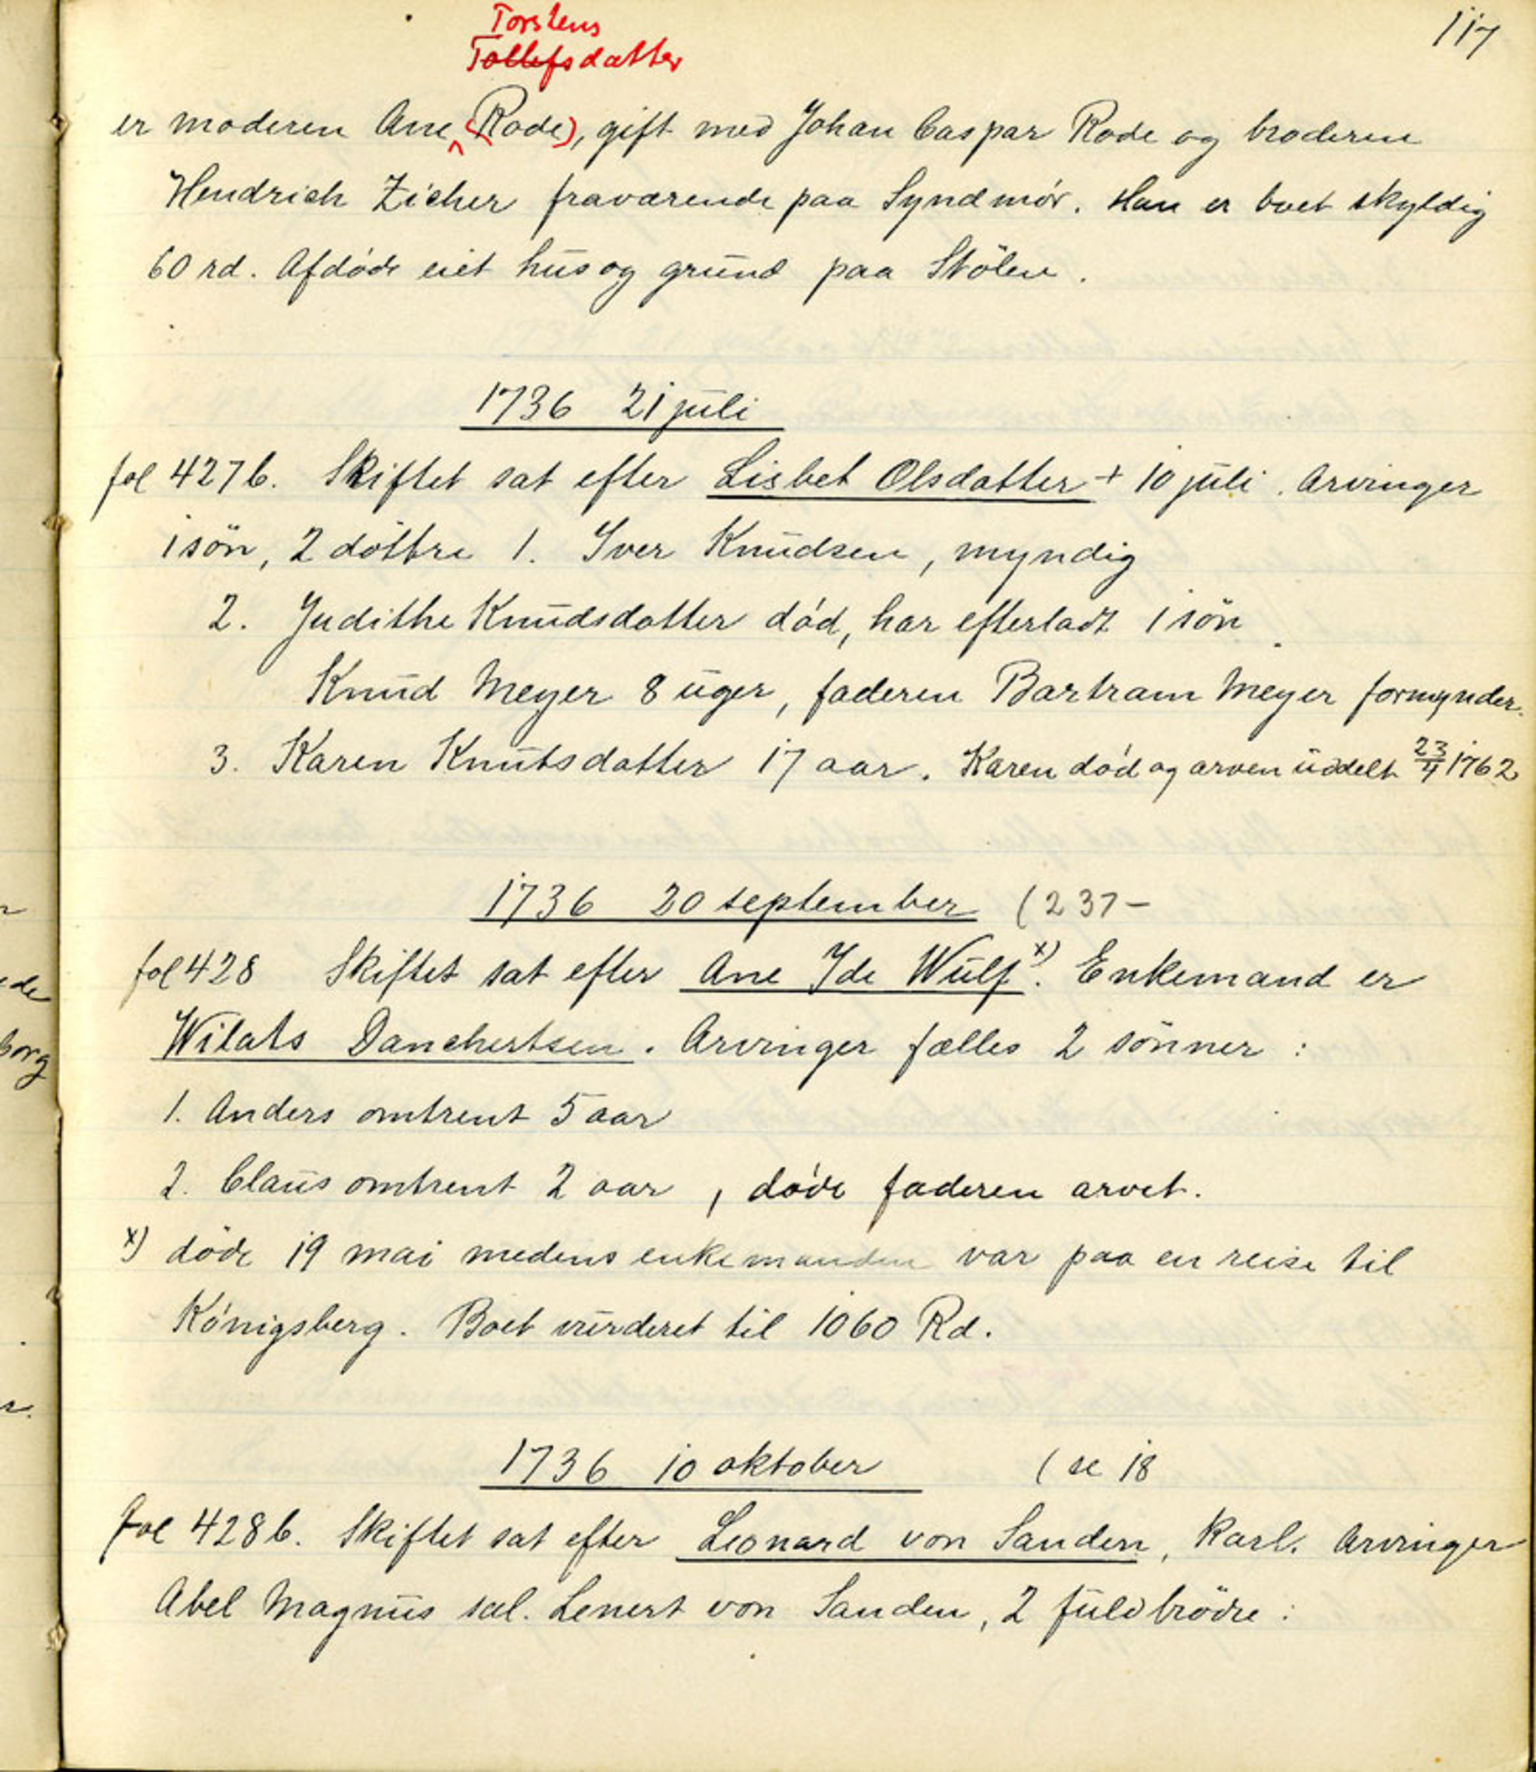 117
Torstens
Tollefsdatter
er moderen Ane (Rode), gift med Johan Caspar Rode og broderen
Hendrich Zicher fraværende paa Syndmør. Han er boet skyldig
60 rd. Afdøde eiet hus og grund paa Stölen.
1736 21 juli
fol 427b. Skiftet sat efter Lisbet Olsdatter + 10 juli. Arvinger
1 sön, 2 döttre 1. Iver Knudsen, myndig
2. Judithe Knudsdatter død, har efterladt 1 sön
Knud Meyer 8 uger, faderen Bartram Meyer formynder.
3. Karen Knutsdatter 17 aar. Karen død og arven uddelt 23/4 1762
1736 20 september (237-
fol 428 Skiftet sat efter Ane Ide Wulf x). Enkemand er
Wilats Danchertsen. Arvinger fælles 2 sønner:
1. Anders omtrent 5 aar
2. Claus omtrent 2 aar, døde faderen arvet.
x) døde 19 mai medens enkemanden var paa en reise til
Königsberg. Boet vurderet til 1060 Rd.
1736 10 oktober (se 18
fol 428b. Skiftet sat efter Leonard von Sanden, Karl. Arvinger
Abel Magnus sal. Lenert von Sanden, 2 fuldbrödre:
de
borg